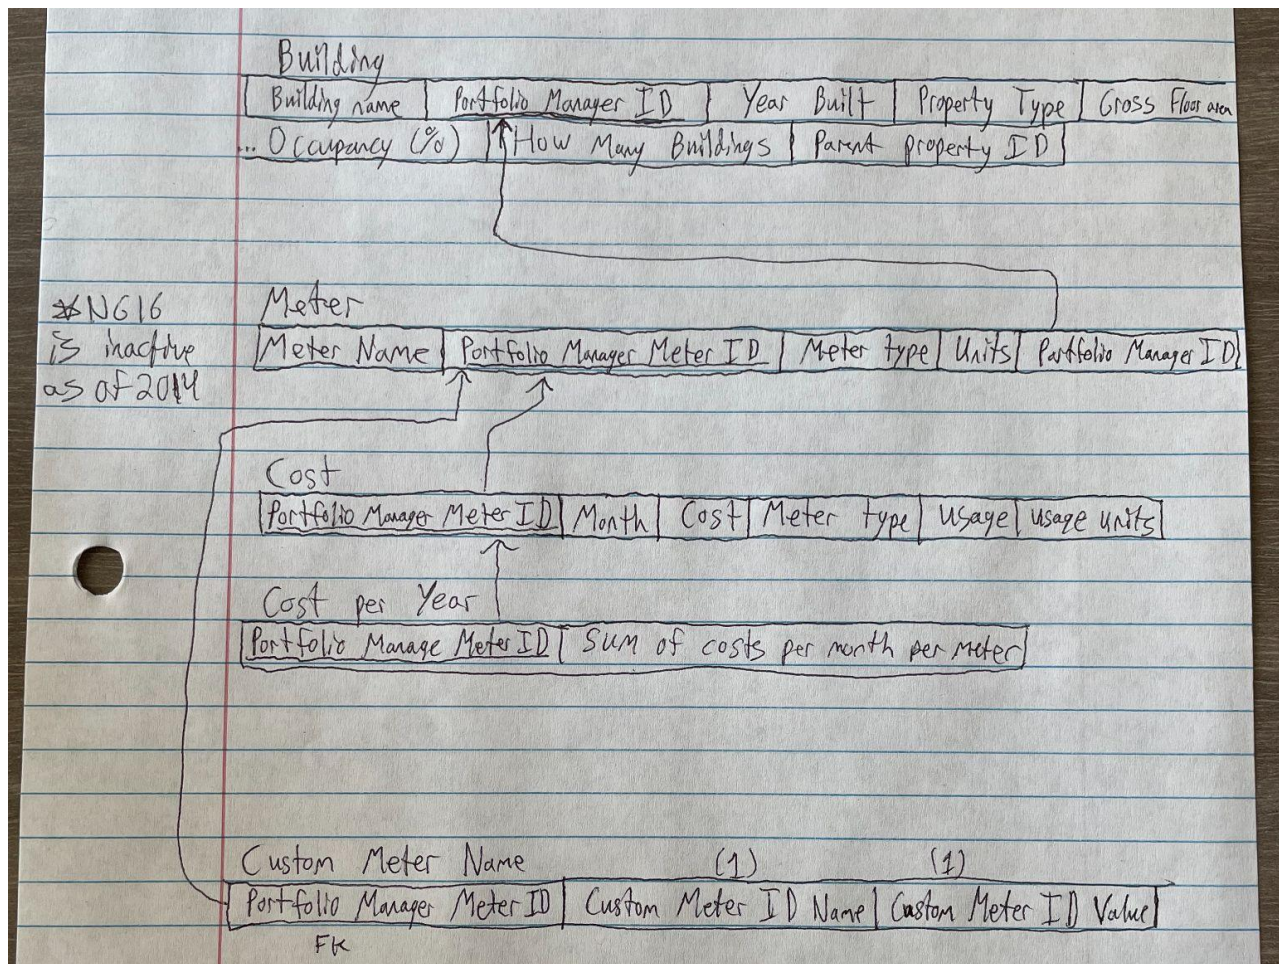 Building
Building name Portfolio Manager ID Year Built Property Type Gross Floor area
... Occupancy (%) How Many Buildings Parent property ID
*NG16
is inactive
as of 2014
Meter
Meter Name Portfolio Manager Meter ID Meter type Units Portfolio Manager ID
Cost
Portfolio Manager Meter ID Month Cost Meter type Usage usage units
Cost per Year
Portfolio Manage Meter ID Sum of costs per month per meter
Custom Meter Name (1) (1)
Portfolio Manager Meter ID Custom Meter ID Name Custom Meter ID Value
FK